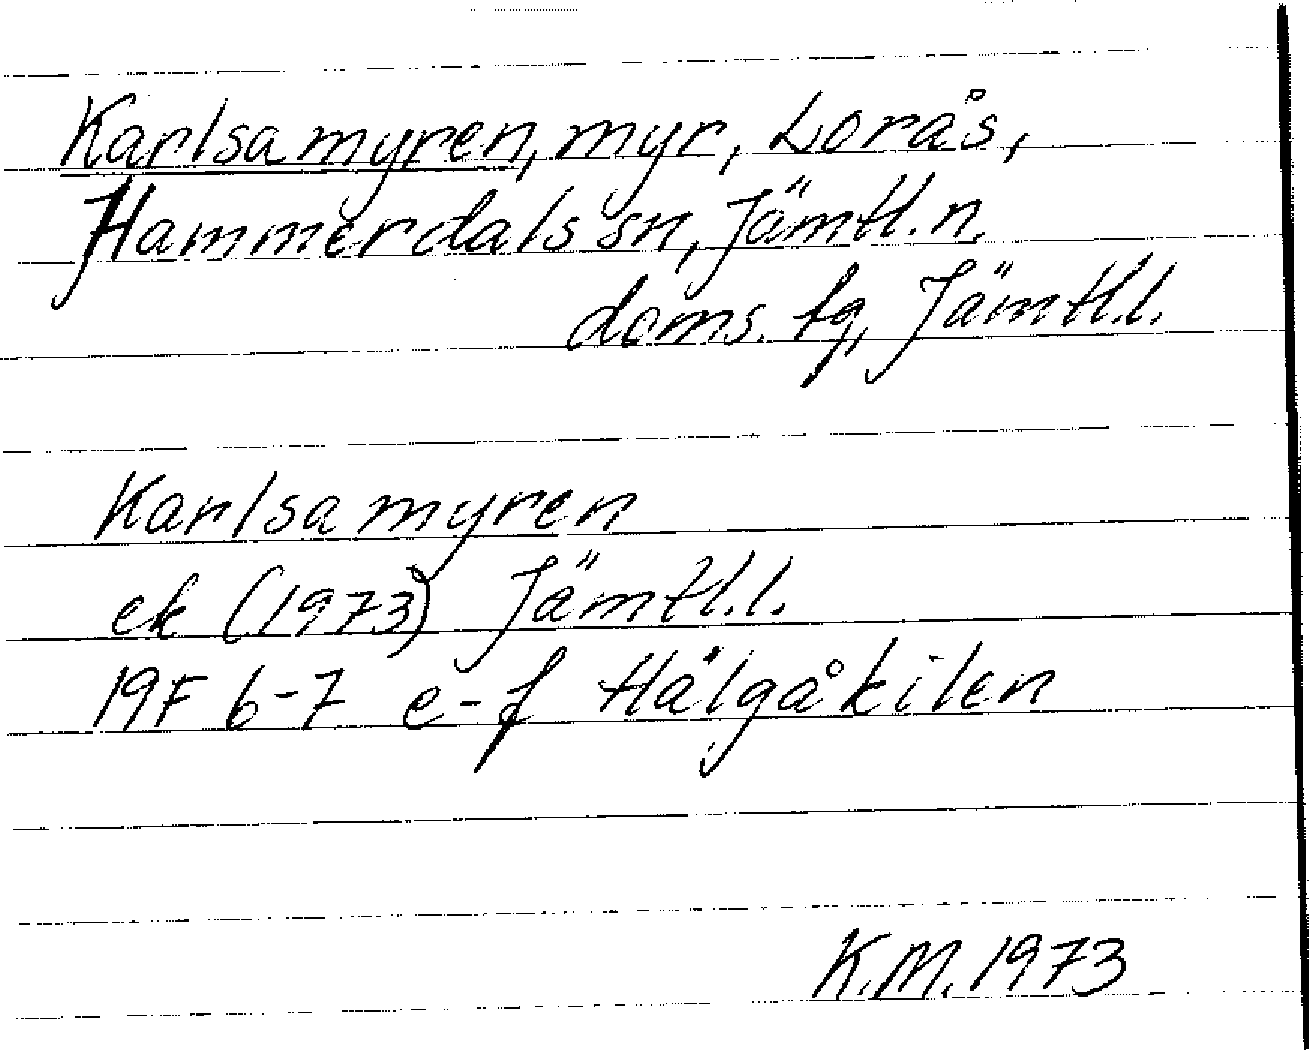 Karlsamyren, myr, Lorås,
Hammerdals sn, Jämtl. n.
doms. fg, Jämtl. l.
Karlsamyren
ek (1973) Jämtl. l.
19F 6-7 e-f Hälgåkilen
K.M. 1973